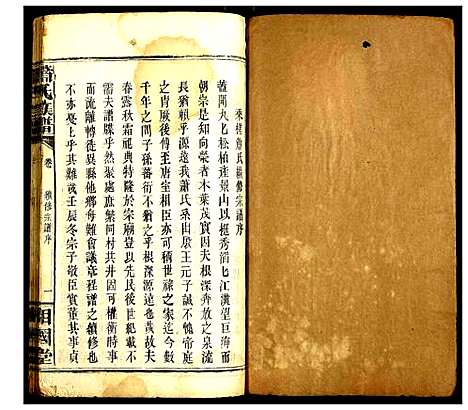 蕭氏續修宗譜序
蓋聞丸丸松柏產景山以挺秀滔滔江漢望巨海而
朝宗是知向榮者木葉茂實因夫根深奔放之泉流
長猶賴乎源遠我蕭氏系出殷王元子誠不愧帝庭
之冑厥後傅至唐室相臣亦可稱世祿之家迄今數
千年之間子孫蕃衍不猶之乎根深源遠也哉故夫
春露秋霜祀典特隆於宗廟豈以世紀綿載不
需夫譜牒乎然聚處同村共井固可權衡時事
而流離轉徙異縣他鄉每難會議程譜之續修也
不亦憂上乎其難哉壬辰冬宗子敬臣實董其事貞
蕭氏族譜
卷
續修宗譜序
一
相國堂